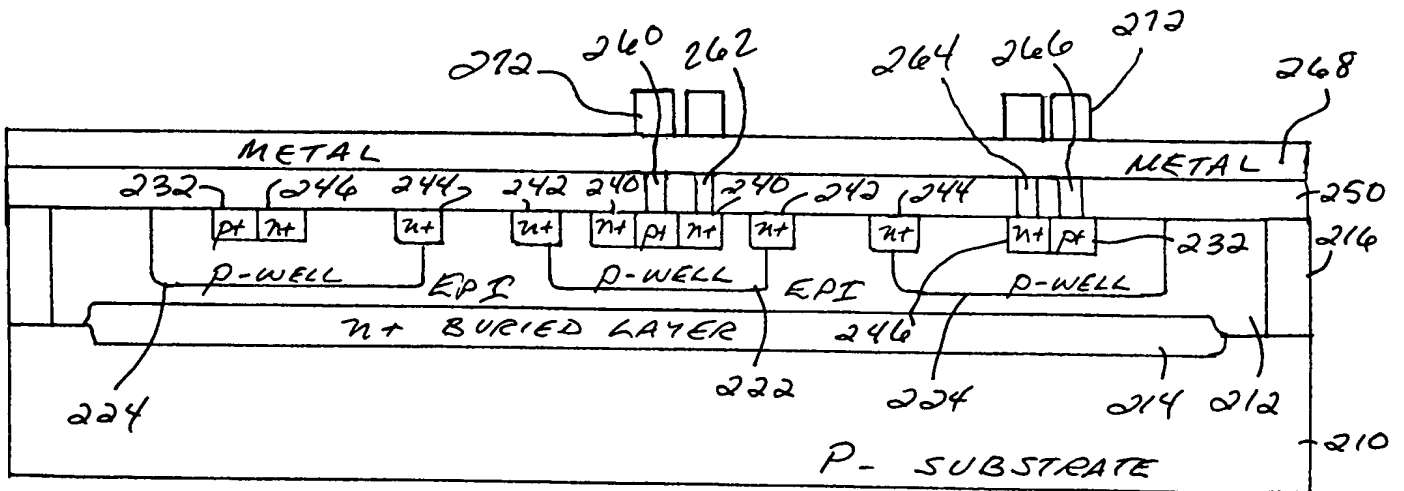 272 260 262 264 266 272 268
METAL METAL
232 246 244 242 240 240 242 244 250
p+ n+ n+ n+ n+ p+ n+ n+ n+ n+ p+ 232 216
P-WELL EPI P-WELL EPI P-WELL
n+ BURIED LAYER 246
224 222 224 214 212
210
P- SUBSTRATE